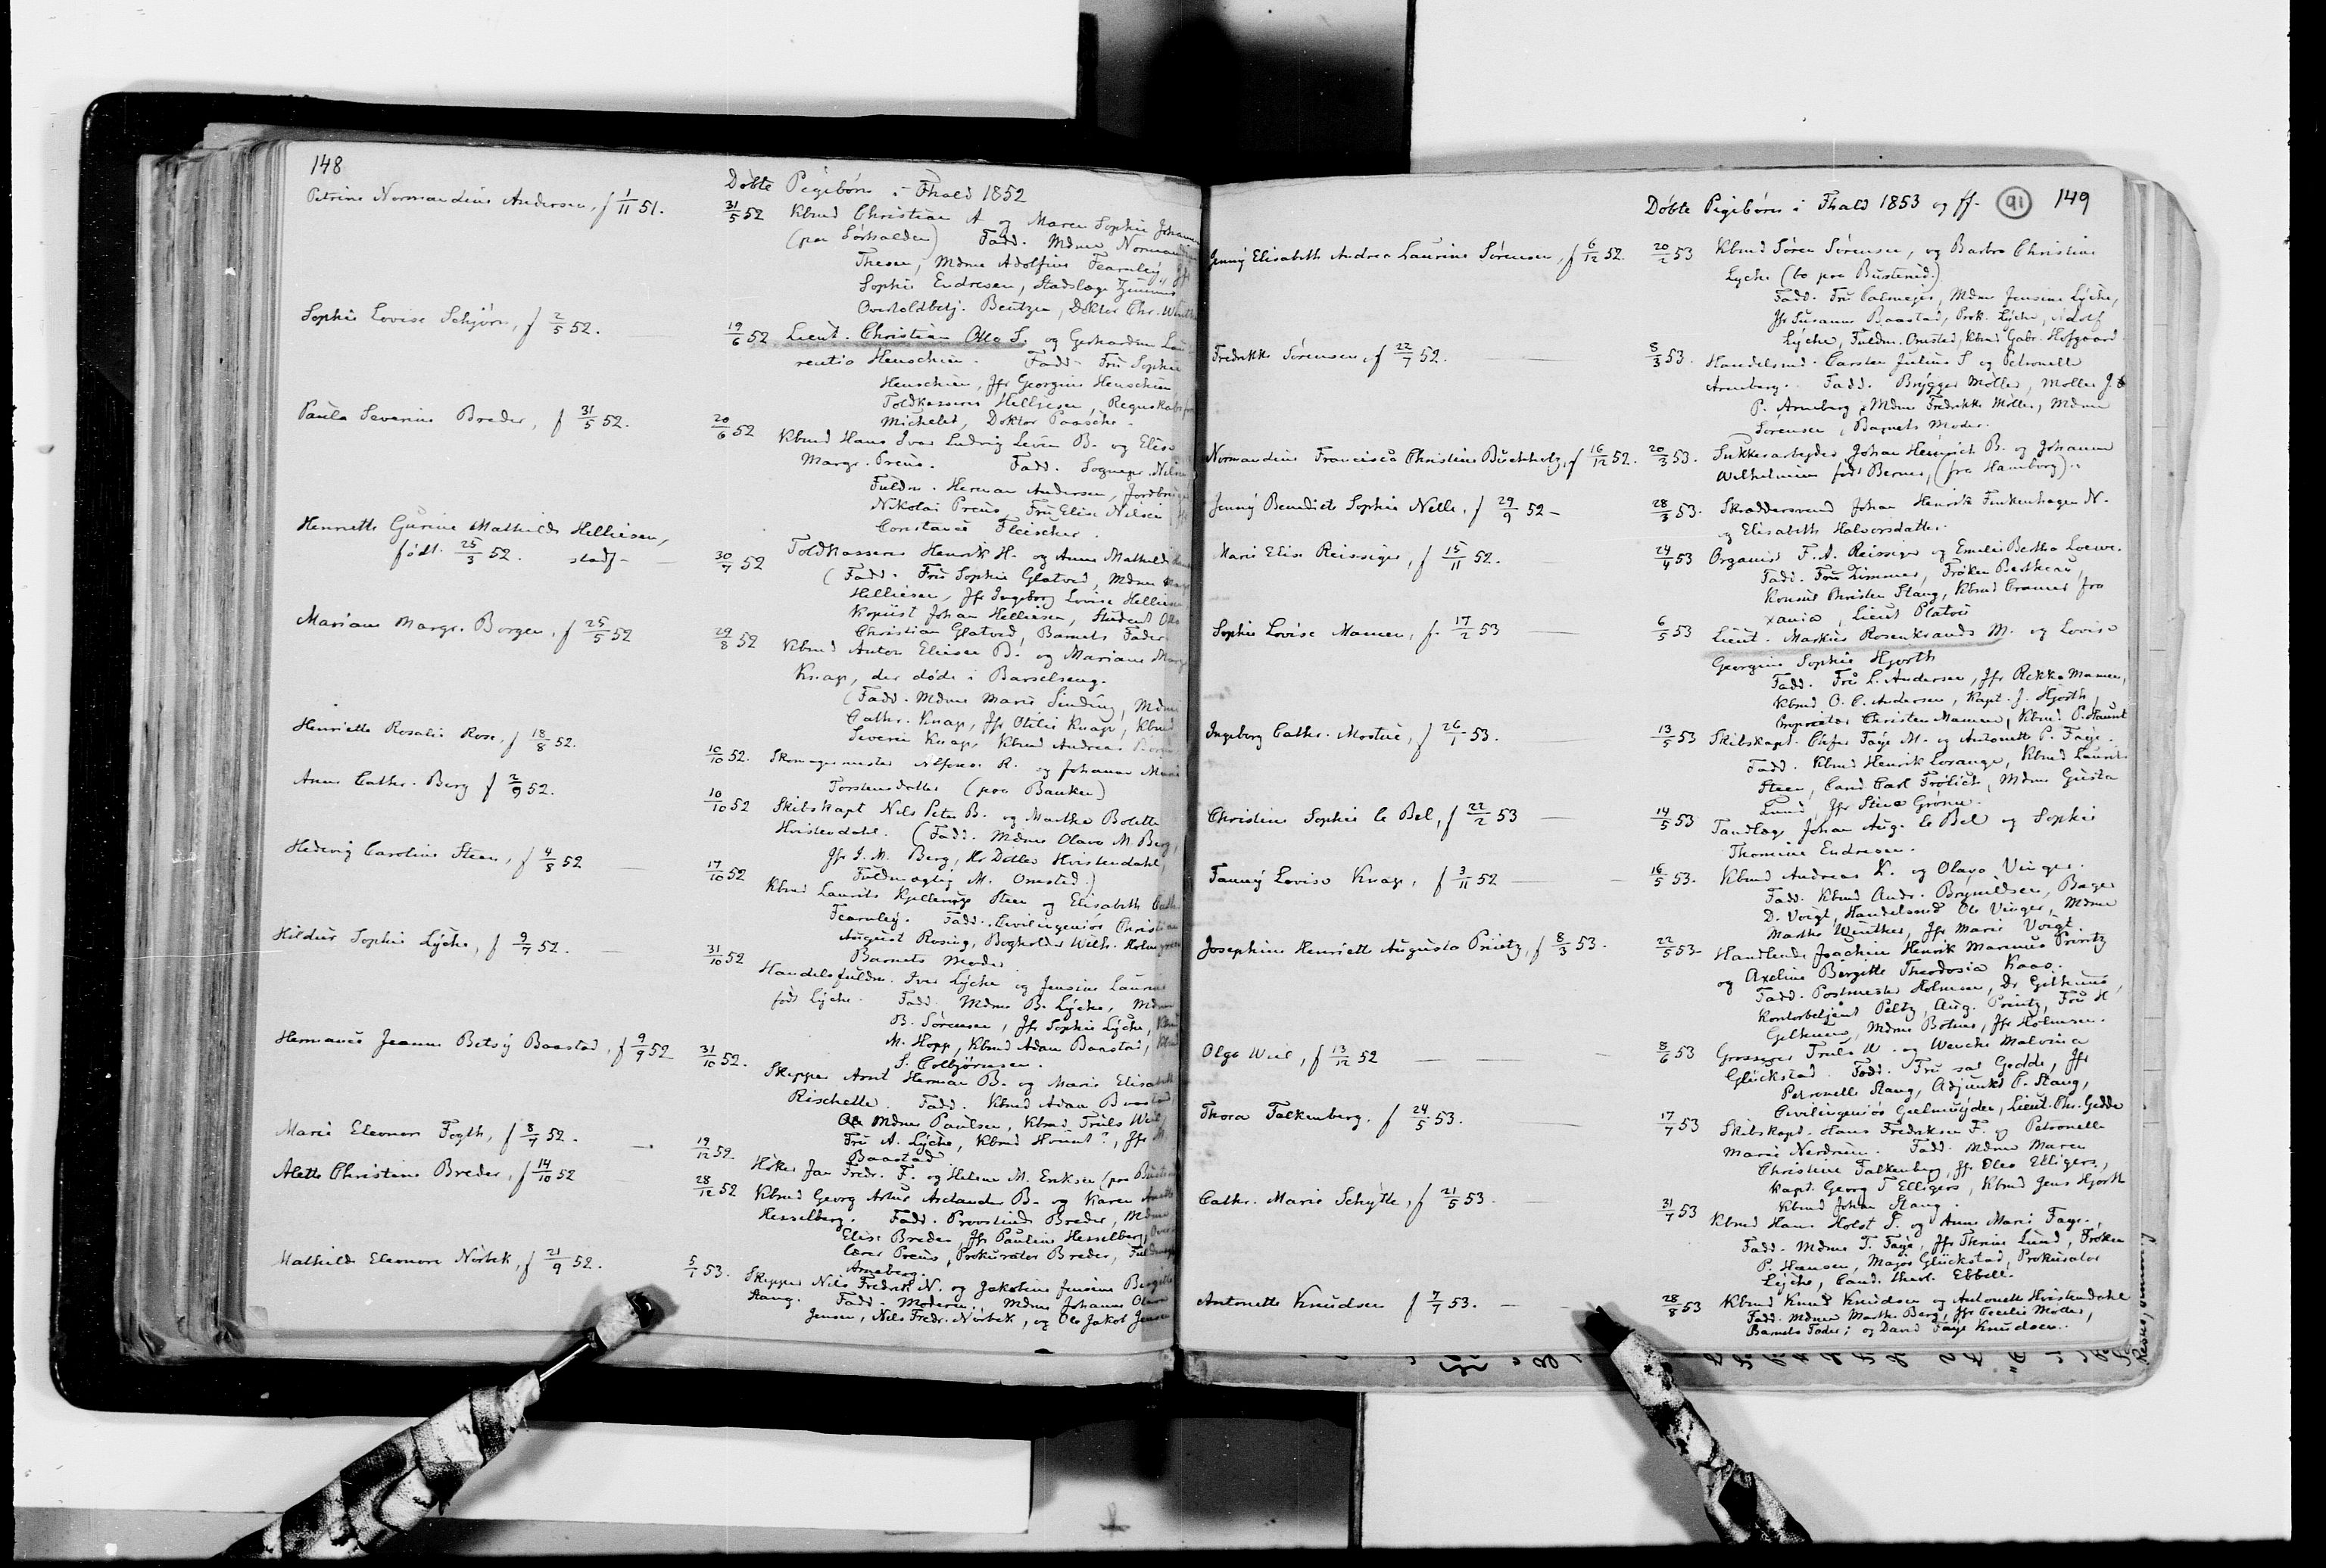 148
Døbte Pigebørn i Fhald 1852
Petrine Normandine Andersen, f 1/11 51.
31/5 52 Kbmd Christian A og Maren Sophie
(paa Sørhalden) Fadd. Mdme
Thesen, Mdme Adolfine Fearnley,
Sophie Endresen, Stadslæge
Overtoldbetj. Bentzen, Doktor Chr.
Sophie Lovise Schjørn, f 2/5 52.
19/6 52 Lieut. Christian Otto S. og Gerhardine
rentia Henschien. Fadd. Fru Sophie
Henschien, Jfr Georgine Henschien
Toldkasserer Helliesen,
Michelet, Doktor Paasche.
Paula Severine Breder, f 31/5 52.
20/6 52 Kbmd Hans Iver Ludvig Leven B. og Elise
Margr. Preus. Fadd. Sognepr. Nilsen
Fuldm. Herman Andersen,
Nikolai Preus, Fru Elise Nilsen,
Constance Fleischer.
Henriette Gurine Mathilde Helliesen,
født 25/3 52. stadf
30/7 52 Toldkasserer Henrik H. og Anne Mathilde
(Fadd. Fru Sophie Glatved, Mdme
Helliesen, Jfr Ingeborg Lovise
Kopiist Johan Helliesen, Student
Christian Glatved, Barnets Fader
Mariane Margr. Borgen, f 25/5 52
29/8 52 Kbmd Anton Eliesen B. og Mariane
Knap, der døde i Barselseng.
(Fadd. Mdme Marie Sinding,
Cathr. Knap, Jfr Otilie Knap, Kbmd
Severin Knap, Kbmd Andreas
Henriette Rosalie Rose, f 18/8 52.
10/10 52. Skomagermester Alfons R. og Johanne
Torstensdatter (paa Banken)
Anne Cathr. Berg f 2/9 52.
10/10 52 Skibskapt Nils Peter B. og Marthe Bolette
Hvistendahl. (Fadd. Mdme Olava M. Berg,
Jfr J. M. Berg, Hr Ditlev Hvistendahl,
Fuldmægtig M. Omsted.)
Hedevig Caroline Steen, f 4/8 52
17/10 52 Kbmd Laurits Steen og Elisabeth
Fearnley. Fadd. Civilingeniør Christian
August Rosing, Bogholder Wilh.
Barnets Moder.
Hildur Sophie Lyche, f 9/7 52.
31/10 52 Handelsfuldm. Iver Lyche og Jensine
født Lyche. Fadd. Mdme B. Lyche,
B. Sørensen, Jfr Sophie Lyche,
M. Hopp, Kbmd Adam Baastad,
S. Colbjørnsen.
Hermance Jeanne Betsy Baastad, f 9/9 52
31/10 52. Skipper Arnt Herman B. og Marie
Rischelle. Fadd. Kbmd Adam Baastad,
Mdme Paulsen, Kbmd Truls Wiel,
Fru A. Lyche, Kbmd ?, Jfr M.
Baastad
Marie Eleonore Fogth, f 8/7 52.
19/12 52. Høker Jan Fredr. F. og Helene M. Eriksen
Alette Christine Breder, f 14/10 52
28/12 52 Kbmd Georg B. og Karen
Hesselberg. Fadd. Provstinde Breder,
Elise Breder, Jfr Pauline Hesselberg,
lærer Preus, Prokurator Breder,
Arneberg.
Mathilde Eleonore Norbek, f 21/9 52.
5/1 53. Skipper Nils Fredrik N. og Jakobine Jensine
Stang. Fadd. Moderen. Mdme Johanne
Jensen, Nils Fredr. Norbek, og Ole Jakob
Døbte Pigebørn i Fhald 1853 og ff. 91 149
Jenny Elisabeth Andrea Laurine Sørensen, f 6/12 52.
20/2 53 Kbmd Søren Sørensen, og Barbro Christine
Lyche (bo paa Busterud.)
Fadd. Fru Calmeyer, Mdme Jensine Lyche,
Jfr Susanne Baastad, Prok. Lyche, Adolf
Lyche, Fuldm. Omsted, Kbmd Gabr. Hofgaard
Fredrikke Sørensen, f 22/7 52.
8/3 53. Handelsmd. Carsten Julius S og Petronelle
Arneberg. Fadd. Brygger Møller, Møller
P. Arneberg, Mdme Fredrikke Møller, Mdme
Sørensen, Barnets Moder.
Normandine Francisca Christine Buchholz, f 16/12 52.
20/3 53. Sukkerarbejder Johan Heinrich B. og Johanne
Wilhelmine født Berner, (fra Hamborg).
Jenny Benedicte Sophie Nelle, f 29/9 52
28/3 53. Skræddersvend Johan Henrik Finkenhagen N.
og Elisabeth Halvorsdatter.
Marie Elise Reissiger, f 15/11 52.
24/4 53 Organist F. A. Reissiger og Emilie Bertha Loewe.
Fadd. Fru Zimmer, Frøken
Konsul Christen Stang, Kbmd Cramer fra
xania, Lieut Platou
Sophie Lovise Mamen, f. 17/2 53
6/5 53 Lieut. Markus Rosenkrands M. og Lovise
Georgine Sophie Hjorth
Fadd. Fru L. Andersen, Jfr Rikke Mamen,
Kbmd O. C. Andersen, Kapt. J. Hjorth,
Proprietær Christen Mamen, Kbmd P.
Ingeborg Cathr. Mostue, f 26/1 53.
13/5 53 Skibskapt. Faye M. og Antonette P. Faye.
Fadd. Kbmd Henrik Lorange, Kbmd Laurits
Steen, Cand Carl Frølich, Mdme Gusta
Lund, Jfr Stina Grønn.
Christine Sophie le Bel, f 22/2 53
14/5 53 Tandlæge Johan Aug. le Bel og Sophie
Thomine Endresen.
Fanny Lovise Knap, f 3/11 52
16/5 53. Kbmd Andreas K. og Olava Vinger.
Fadd. Kbmd Andr. Brynildsen, Bager
D. Voigt, Handelsmd Ole Vinger, Mdme
Marthe Winther, Jfr Marie Voigt.
Josephine Henriette Augusta Printz, f 8/3 53.
22/5 53 Handlende Joachim Henrik Marinus Printz
og Axeline Bergitte Theodosia Kaas.
Fadd. Postmester Holmsen, Dr Gethmus,
Kontorbetjent Peltz, Aug. Printz, Fru H
Mdme Botner, Jfr Holmsen.
Olga Wiel, f 13/12 52
8/6 53 Grosserer Truls W. og Wenche Malvina
Glückstad. Fadd. Fru Gedde, Jfr
Petronelle Stang, Adjunkt C. Stang,
Civilingeniør Gulmuyden, Lieut. Chr. Gedde
Thora Falkenberg. f 24/5 53.
17/7 53 Skibskapt. Hans Fredriksen F. og Petronelle
Marie Nerdrum. Fadd. Mdme Maren
Christine Falkenberg, Jfr Olea Elligers,
Kapt. Georg T Elligers, Kbmd Jens Hjorth
Kbmd Johan Stang.
Cathr. Marie Schytte, f 21/5 53.
31/7 53 Kbmd Hans Holst S. og Anne Marie Faye.
Fadd. Mdme T. Faye, Jfr Thrine Lund, Frøken
P. Hansen, Major Glückstad, Prokurator
Lyche, Cand. theol. Ebbell.
Antonette Knudsen f 7/7 53.
28/8 53 Kbmd Knud Knudsen og Antonette Hvistendahl
Fadd. Mdme Marthe Berg, Jfr Cecilie Møller,
Barnets Fader; og David Faye Knudsen.